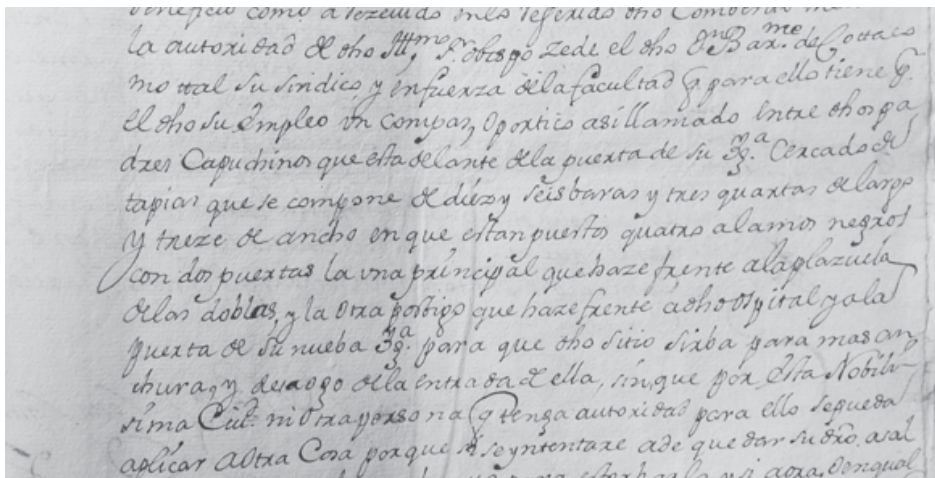 beneficio como a rezeuido en los referidos dho Combento
la autoridad de dho Illmo Sr. obispo zede el dho Dn Barme. de Cotta co
mo ttal su sindico, y en fuerza de la facultad q para ello tiene q.
el dho su empleo un compas, o portico asi llamado entre dhos pa
dres Capuchinos que esta delante de la puerta de su Yga. Cercado de
tapias que se compone de diez y seis baras y tres quartas de largo
y treze de ancho en que estan puestos quatro alamos negros
con dos puertas la una prinsipal que haze frente a la plazuela
de las doblas, y la otra postigo que haze frente a dho ospital y a la
puerta de su nueba Yga. para que dho sitio sirba para mas an
chura, y desaogo de la entrada de ella, sin que por esta Nobili
sima Ciud. ni otra persona q tenga autoridad para ello se pueda
aplicar a otra Cosa porque si se yntentare a de quedar su dro. a sal